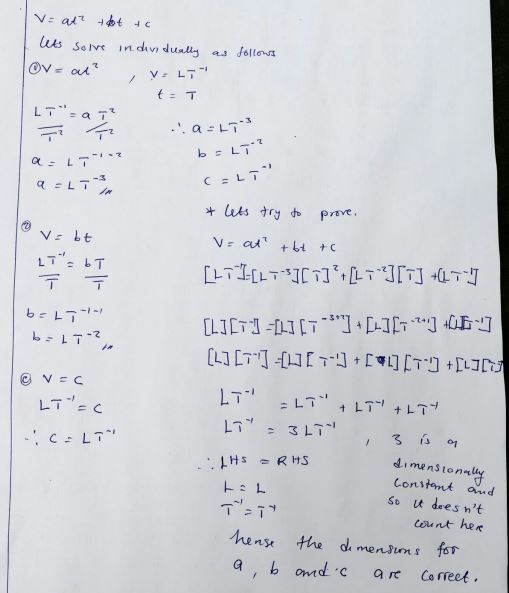 V = at² + bt + c
lets solve individually as follows
① V = at² , V = LT⁻¹
t = T
LT⁻¹ = a T²
T² T²
a = LT⁻¹⁻²
a = LT⁻³
② V = bt
LT⁻¹ = bT
T T
b = LT⁻¹⁻¹
b = LT⁻²
ⓒ V = C
LT⁻¹ = C
∴ C = LT⁻¹
∴ a = LT⁻³
b = LT⁻²
c = LT⁻¹
* lets try to prove.
V = at² + bt + c
[LT⁻¹]=[LT⁻³][T]²+[LT⁻²][T] +[LT⁻¹]
[L][T⁻¹] =[L][T⁻³⁺²] + [L][T⁻²⁺¹] +[L][T⁻¹]
[L][T⁻¹] =[L][T⁻¹] + [L][T⁻¹] + [L][T]
LT⁻¹ = LT⁻¹ + LT⁻¹ + LT⁻¹
LT⁻¹ = 3LT⁻¹ , 3 is a
dimensionally
constant and
so it doesn't
count here
∴ LHS = RHS
L = L
T⁻¹ = T⁻¹
hense the dimensions for
a, b and c are correct.